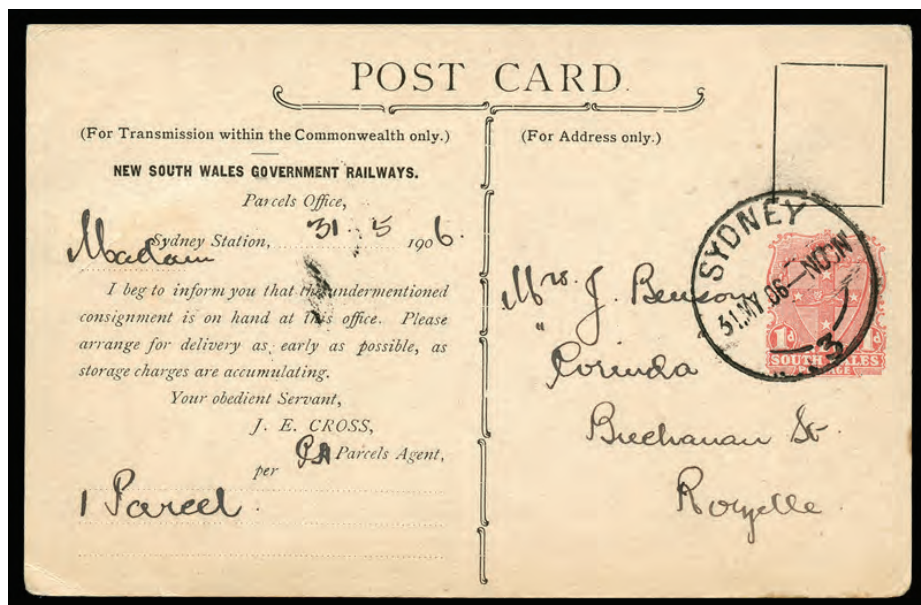 POST CARD.
(For Transmission within the Commonwealth only.)
NEW SOUTH WALES GOVERNMENT RAILWAYS.
Parcels Office,
Sydney Station, 31 5 1906.
Madam
I beg to inform you that the undermentioned
consignment is on hand at this office. Please
arrange for delivery as early as possible, as
storage charges are accumulating.
Your obedient Servant,
J. E. CROSS,
per Parcels Agent,
1 Parcel.
(For Address only.)
SYDNEY
31.MY.06-NOON
3
1d 1d
SOUTH WALES
Mrs. J. Benson
"Corinda
Buchanan St.
Rozelle